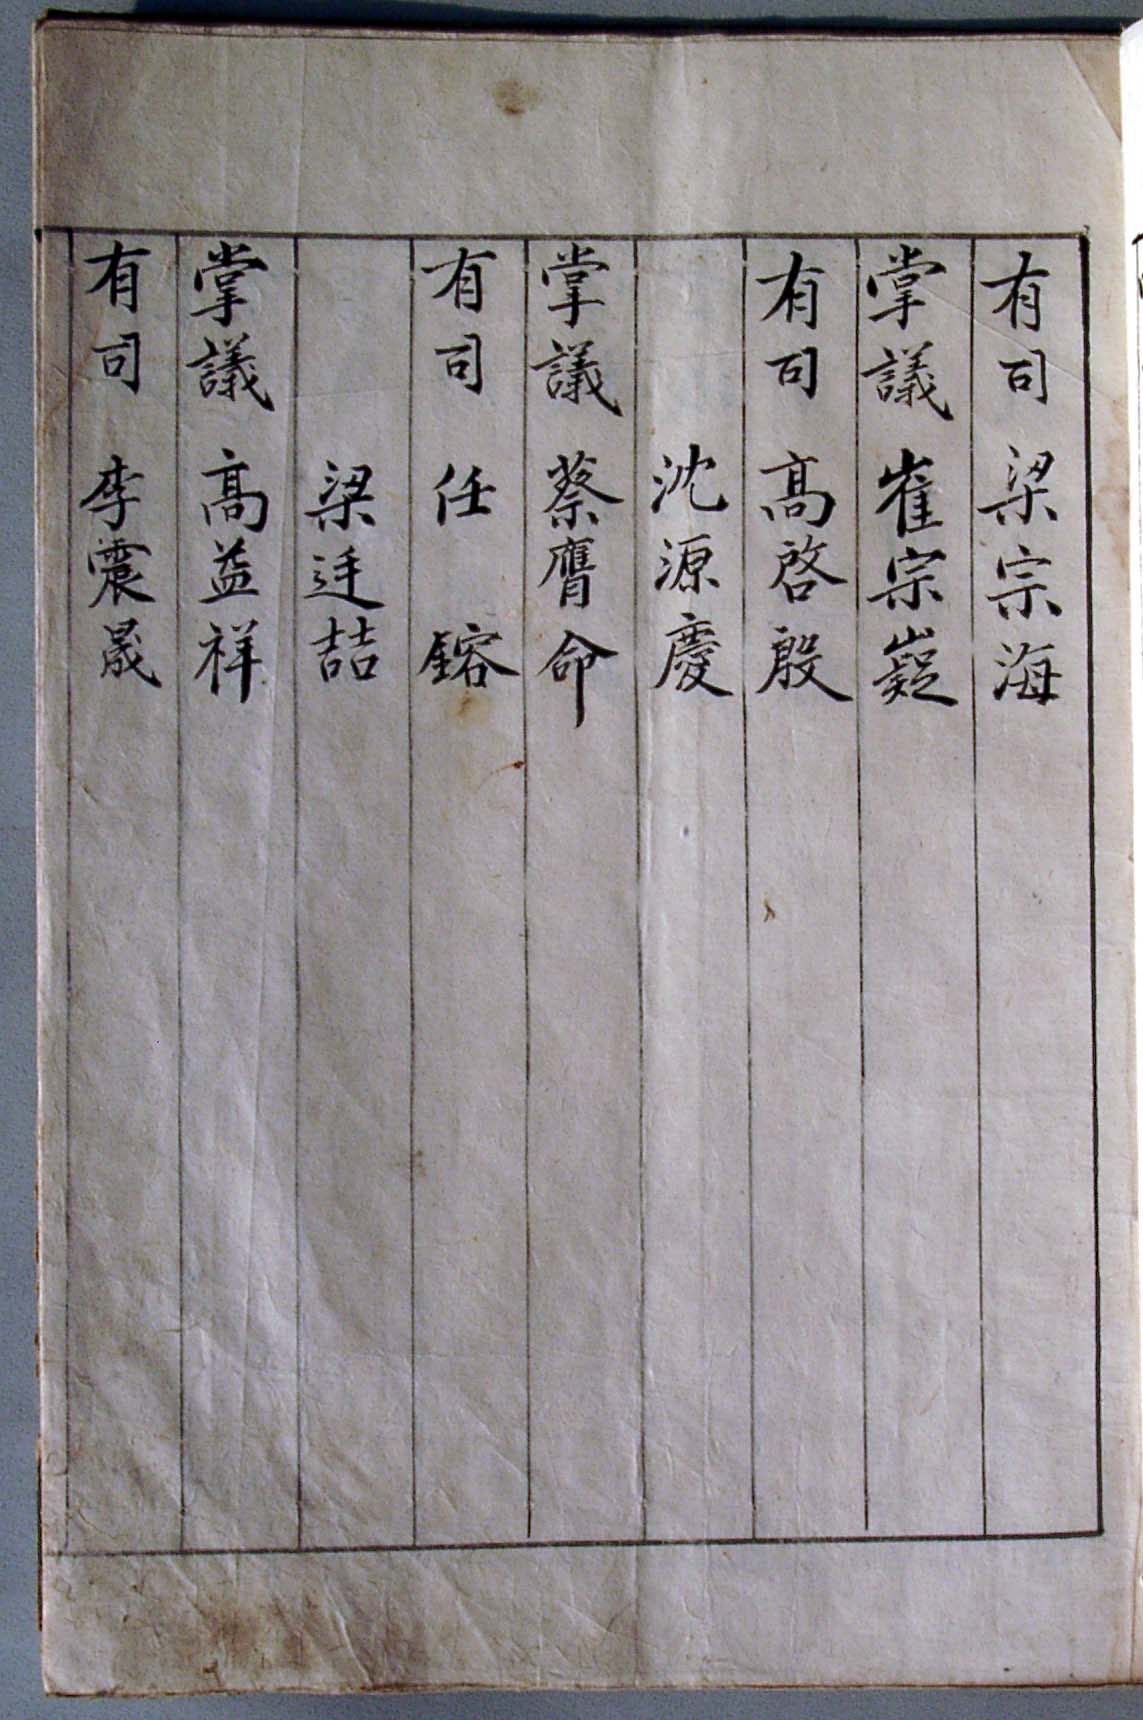 有司 梁宗海
掌議 崔宗嶷
有司 高啓殷
沈源慶
掌議 蔡膺命
有司 任鎔
梁廷喆
掌議 高益祥
有司 李震晟